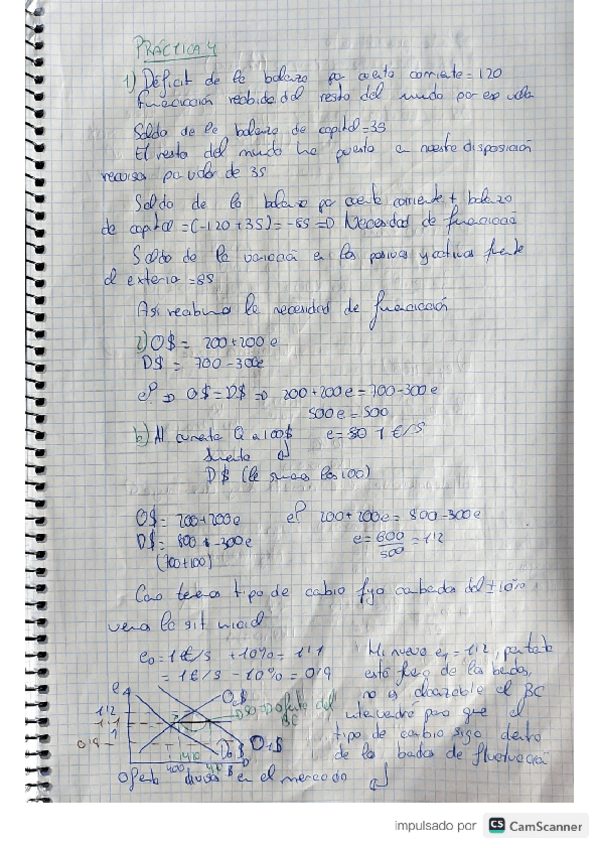 PRÁCTICA 4
1) Déficit de la balanza por cuenta corriente = 120
financiación recibida del resto del mundo por ese valor
Saldo de la balanza de capital = 35
El resto del mundo ha puesto a nuestra disposición
recursos por valor de 35
Saldo de la balanza por cuenta corriente + balanza
de capital = (-120 + 35) = -85 => Necesidad de financiación
Saldo de la variación en los pasivos y activos frente
al exterior = 85
Así reabrimos la necesidad de financiación
2) O$ = 200 + 200 e
D$ = 700 - 300e
eº => O$ = D$ => 200 + 200 e = 700 - 300 e
500 e = 500
b) Al aumentar Q a 100$ e = 1 €/$
D$ (le sumas los 100)
O$ = 200 + 200e eº 200 + 200e = 800 - 300e
D$ = 800 - 300e e = 600/500 = 1'2
(700 + 100)
Como tenemos tipo de cambio fijo con bandas del ±10%
vemos la sit inicial
e₀ = 1€/$ + 10% = 1'1 Mi nuevo e₁ = 1'2, por tanto
= 1€/$ - 10% = 0'9 está fuera de las bandas,
e no es alcanzable el BC
O₀$ intervendrá para que el
1'2 oferta del BC tipo de cambio siga dentro
1'1 de las bandas de fluctuación
1
0'9
D₀$ D₁$
400
Oferta divisas $ en el mercado
impulsado por CS CamScanner